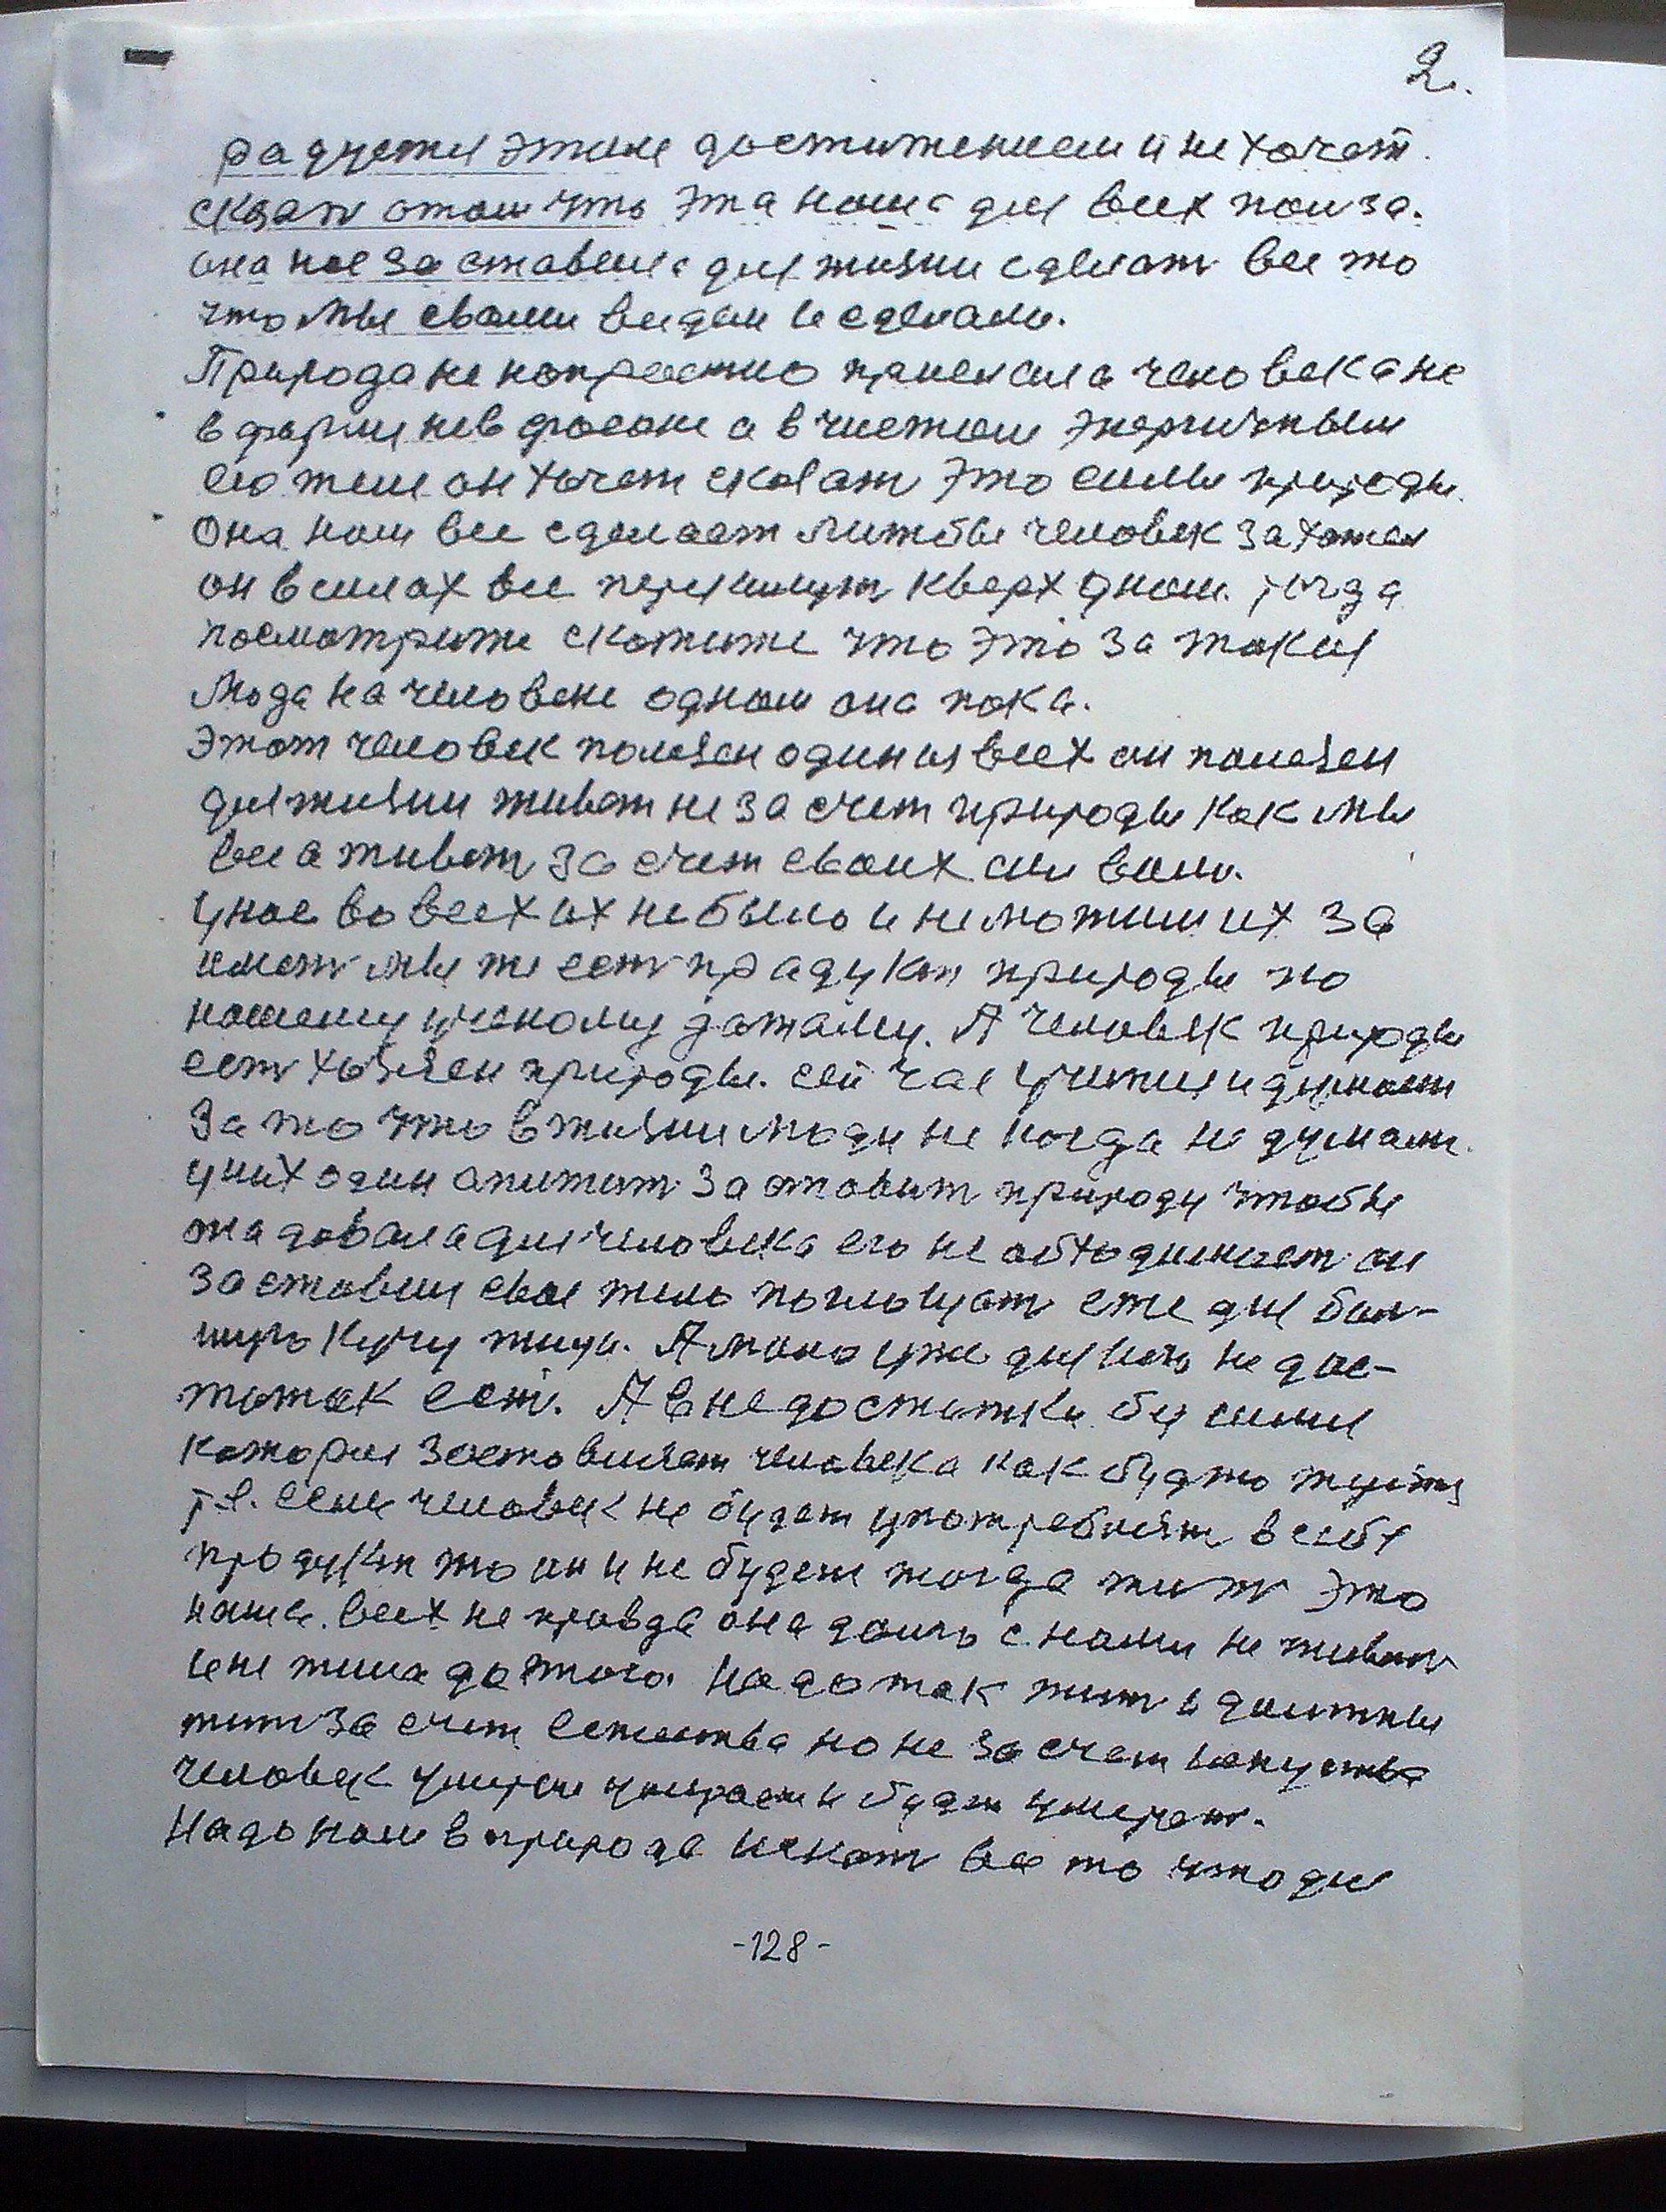 2.
радуетя этим достижением и не хочет
сказат отом что эта наша для всех полза.
она нас заставела для жизни сделат все то
что мы своим видам и сделали.
Природа не напрастно прислала человека не
в форми не в фасоне а в чистом энергичным
его теле он хочет сказат это силы природы.
Она нам все сделает лиж бы человек захотел
он в силах все перекинут кверх дном. тогда
посмотрите скажите что это за такая
мода на человеке одном она пока.
Этот человек полезен один из всех он полезен
для жизни живет не за счет природы как мы
все а живет за счет своих сил воли.
у нас во всех их не было и не можим их за
имет мы же ест прадукт природы по
нашему ученому даждаму. А человек природы
ест хозяен природы. сейчас учится и думает
За то что в жизни люди не когда не думали.
у них один апитит заставит природу чтобы
та довала для человека его не обходимает он
заставил свае тело поглощат еже для бал-
шую кучу пищи. А мало уже для него не дос-
таток ест. А в недостатки бу силия
которая заставляет человека как будто
т.е. если человек не будет употреблят в себя
продукт то он и не будет тогда жит это
наша всех не правда она долго с нами не живет
и не жила до этого. Надо так жит и должны
жит за счет естества но не за счет искуства
человек умирал умирает и будет умират.
Надо нам в природе искат все то что для
-128-